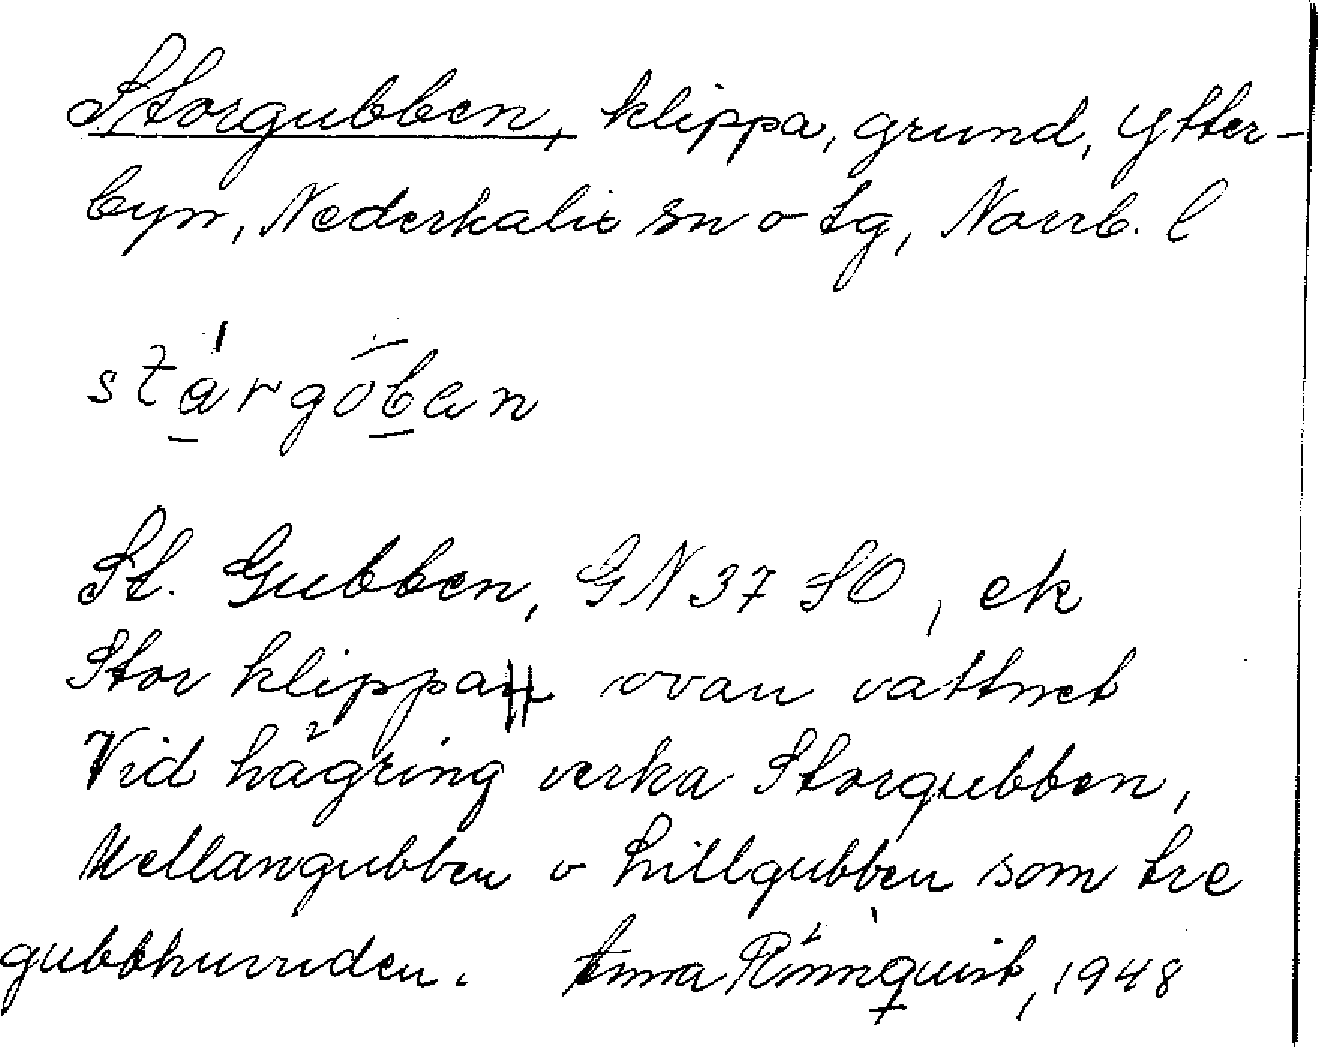 Storgubben, klippa, grund, Ytter-
byn, Nederkalix sn o tg, Norrb. l
stárgób̲an
St. Gubben, GN 37 SO, ek
Stor klippa ovan vattnet
Vid hägring verka Storgubben,
Mellangubben o Lillgubben som tre
gubbhuvuden. Anna Rönnquist, 1948